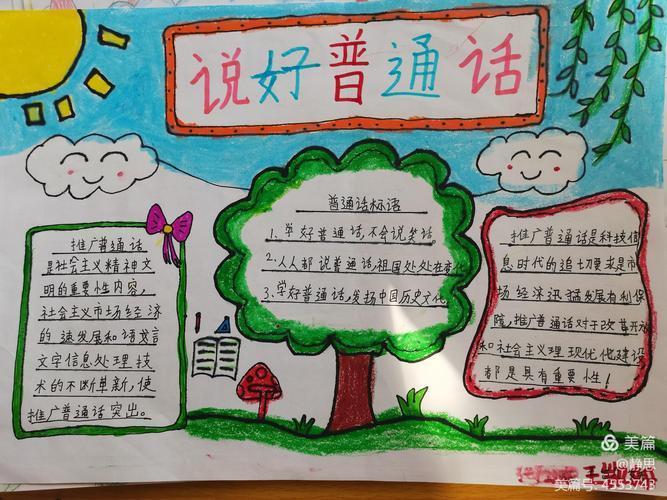 说好普通话
推广普通话
是社会主义精神文
明的重要性内容,
社会主义市场经济
的速发展和语言
文字信息处理技
术的不断革新,使
推广普通话突出。
普通话标语
1、学好普通话,不会说笑话
2、人人都说普通话,祖国处处在变化
3、学好普通话,发扬中国历史文化
推广普通话是科技信
息时代的迫切要求是市
场经济迅猛发展有利保
障,推广普通话对于改革开放
和社会主义现代化建设
都是具有重要性!
美篇
@静思
美篇号: 4553743